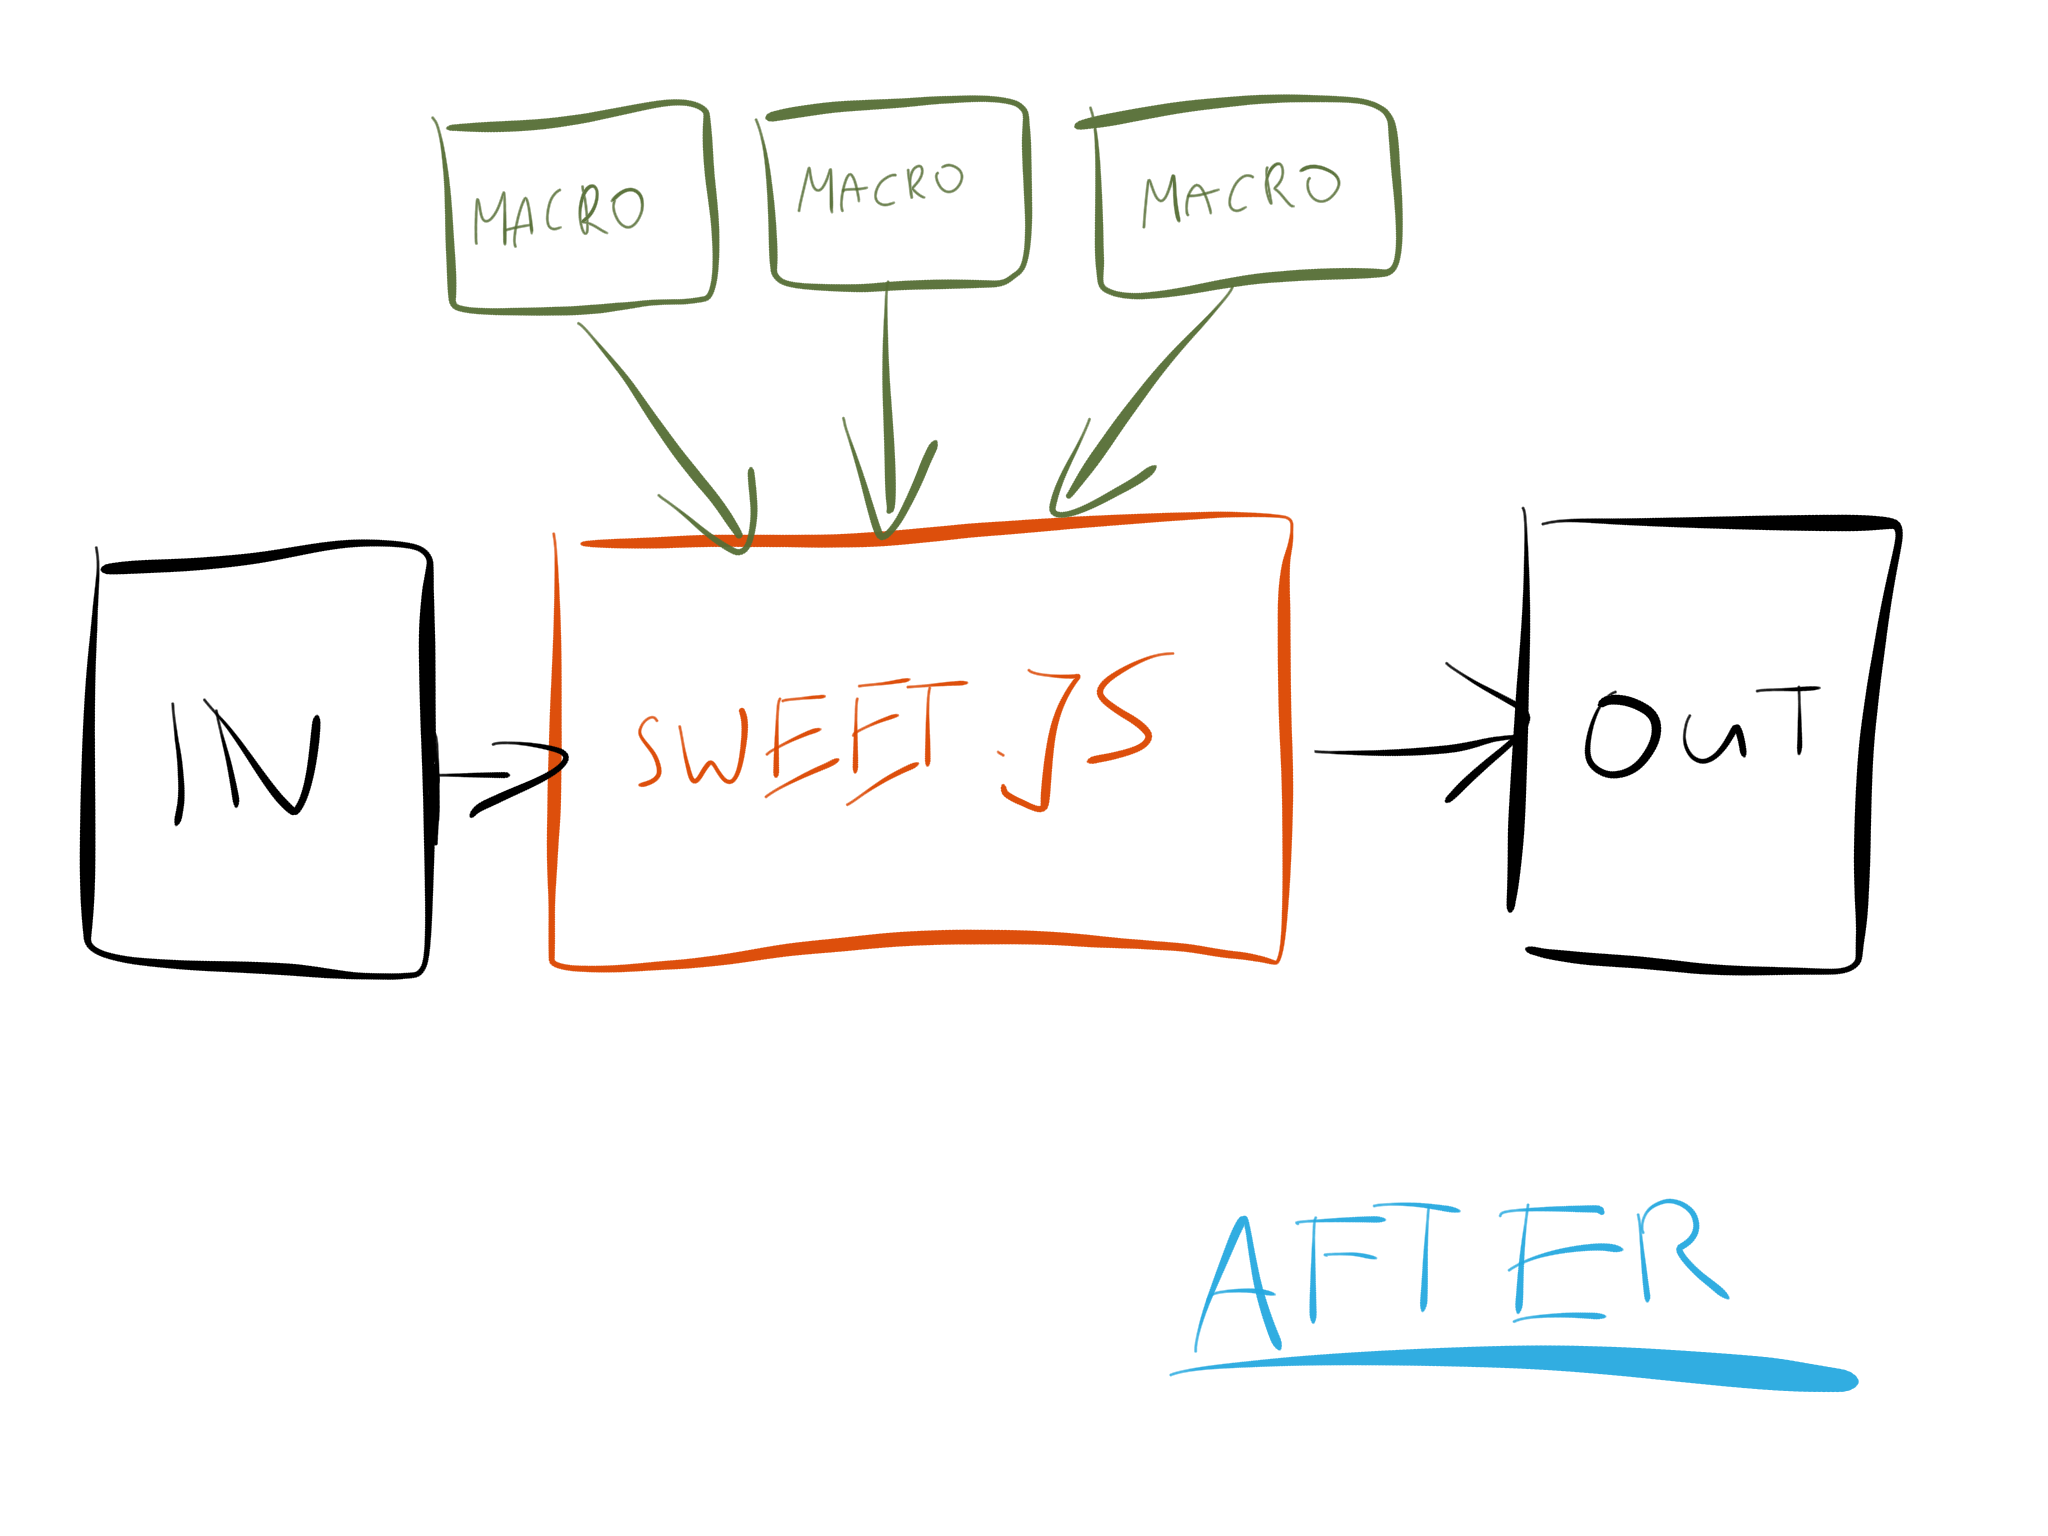 MACRO
MACRO
MACRO
IN
SWEET.JS
OUT
AFTER